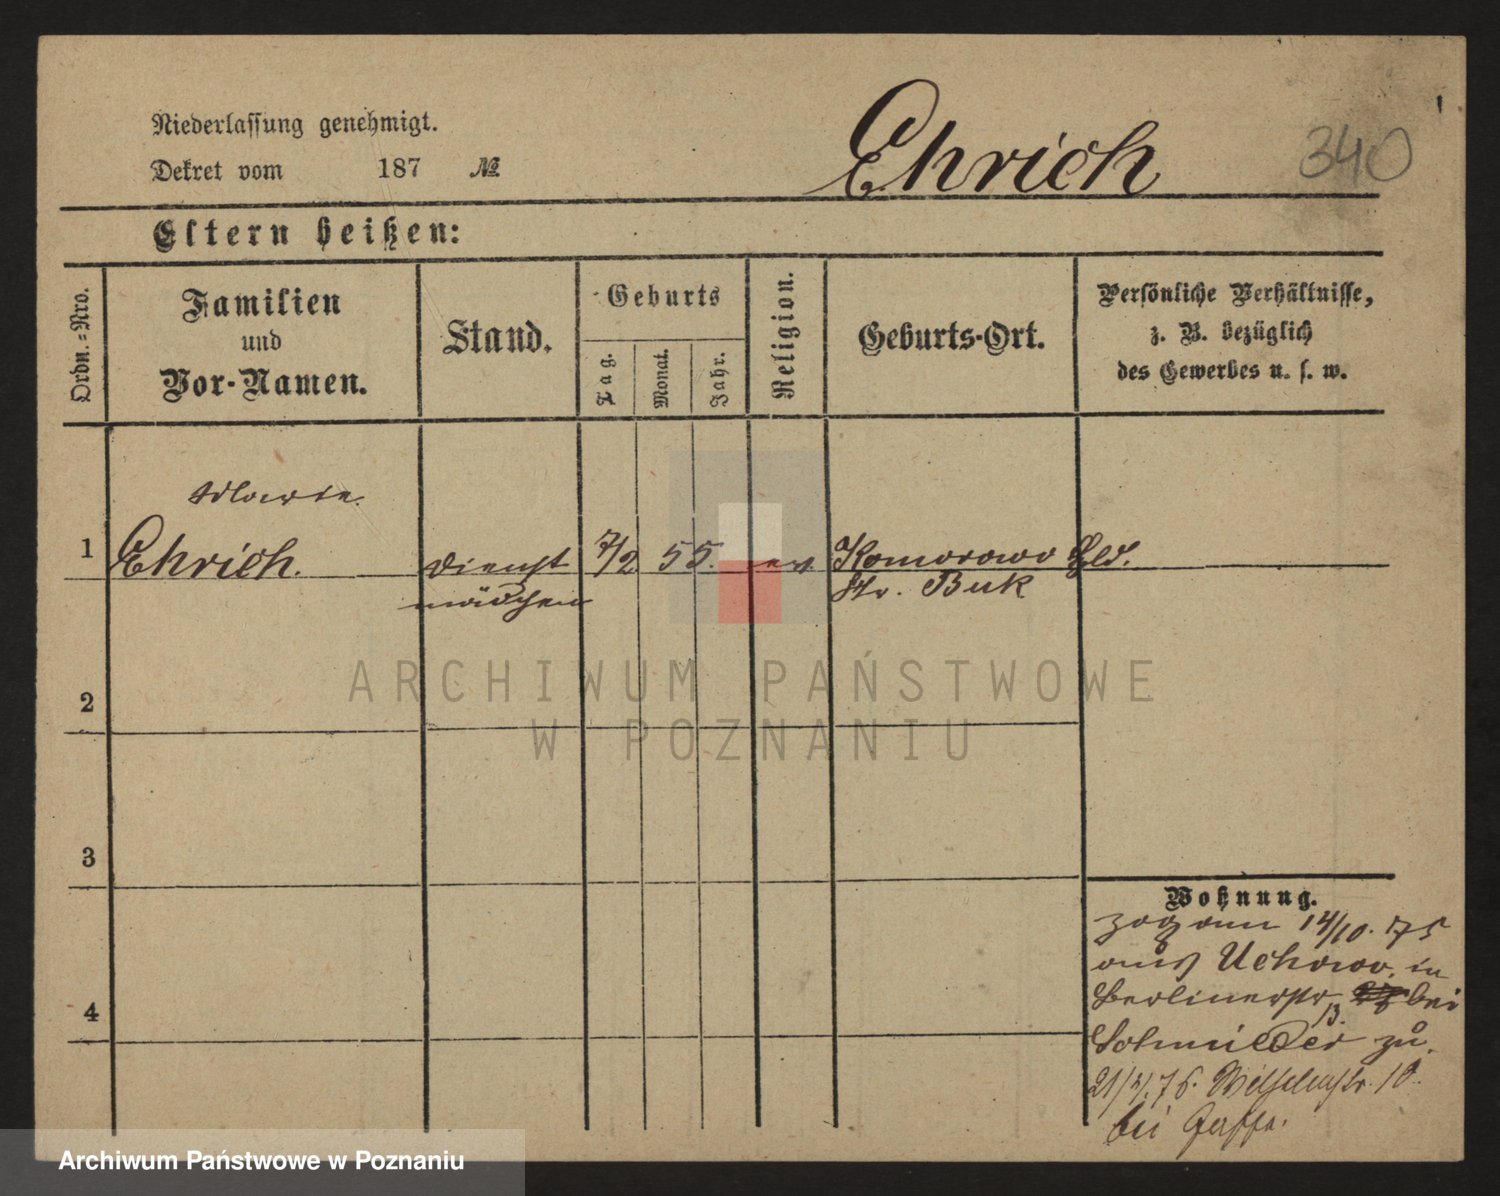 Niederlassung genehmigt.
Dekret vom 187 №
Ehrich
340
Eltern heißen:
Ordn.-Nro.
Familien
und
Vor-Namen.
Stand.
Geburts
Tag.
Monat.
Jahr.
Religion.
Geburts-Ort.
Persönliche Verhältnisse,
z. B. bezüglich
des Gewerbes u. s. w.
Marie
1 Ehrich. Dienst 7/2 55. ev Komorowo Hld.
mädchen Kr. Buk
2
3
4
Wohnung.
zog am 14/10. 75
aus Uchorowo, in
Berlinerstr bei
13.
Schmidt zu.
21/3/.76. Wilhelmstr. 10.
bei
ARCHIWUM PAŃSTWOWE
W POZNANIU
Archiwum Państwowe w Poznaniu